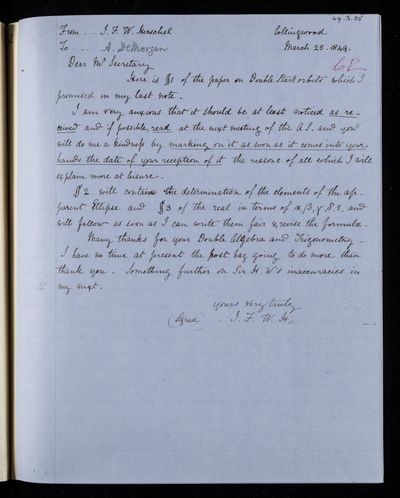 49.3.25
From .. J. F. W. Herschel Collingwood
To .... A. DeMorgan March 25. 1849.
68
Dear Mr Secretary
Here is §1 of the paper on Double Star orbits which I
promised in my last note.
I am very anxious that it should be at least noticed as re-
ceived and if possible, read at the next meeting of the A.S. and you
will do me a kindness by marking on it as soon as it comes into your
hands the date of your reception of it the reasons of all which I will
explain more at leisure.
§2 will contain the determination of the elements of the ap-
parent Ellipse and §3 of the real in terms of α, β, γ, δ, ε, and
will follow as soon as I can write them fair & revise the formulæ.
Many thanks for your Double Algebra and Trigonometry.
I have no time at present the post bag going to do more than
thank you. Something further on Sir H. W's inaccuracies in
my next.
yours very truly
(signed) . J. F. W. H.